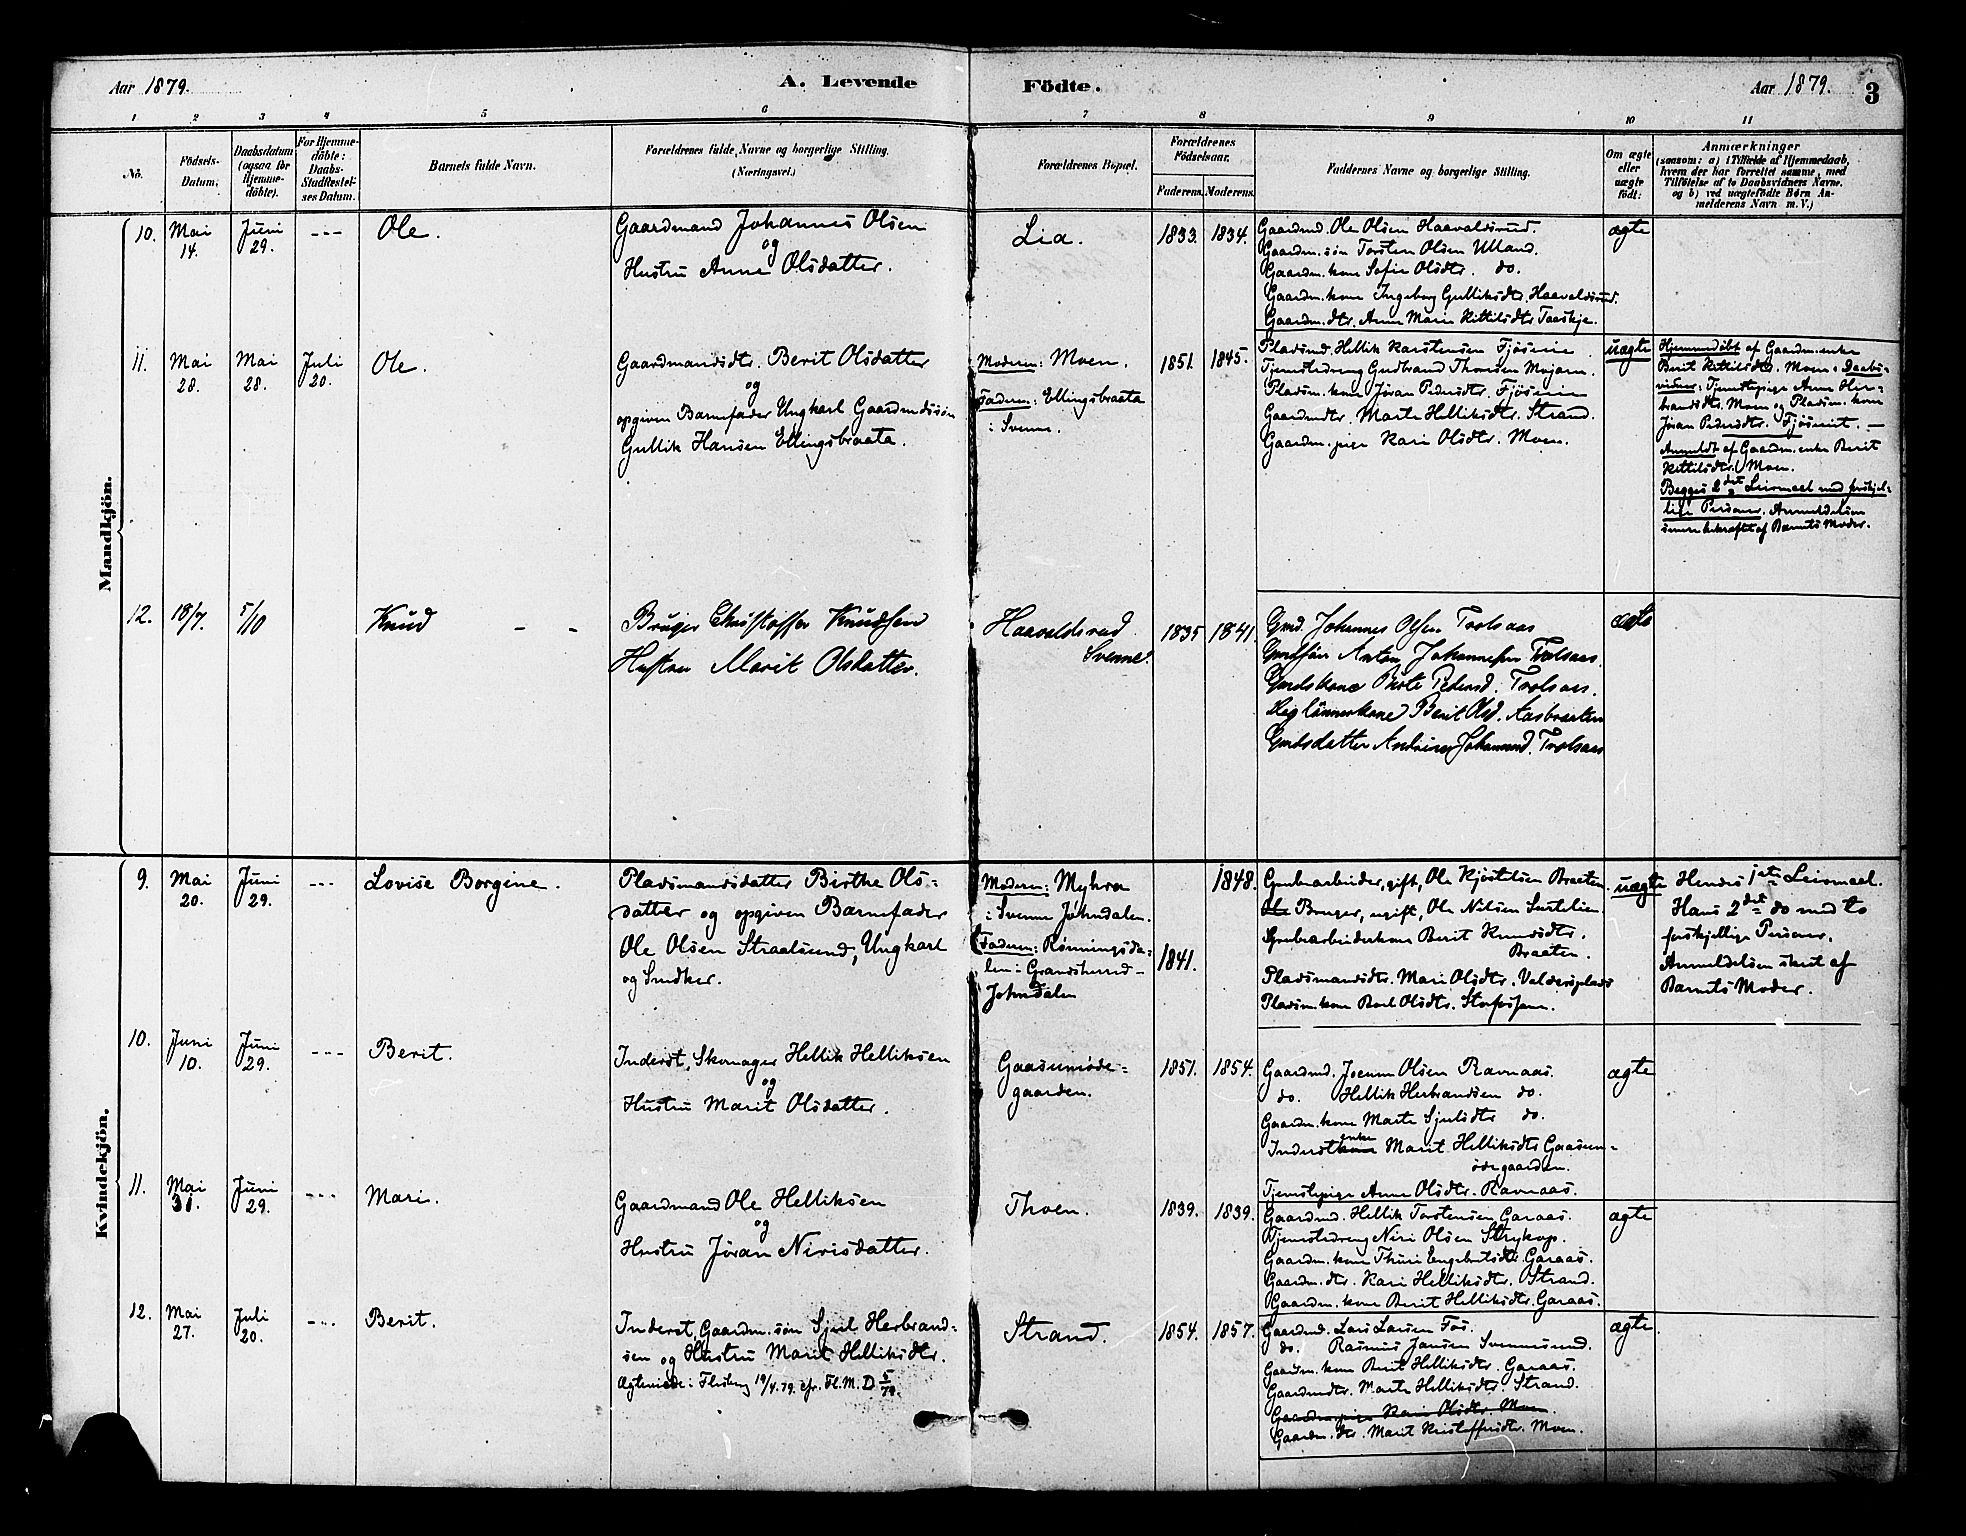 Aar 1879.
A. Levende
Födte.
Aar 1879.
3
1 2 3 4 5 6 7 8 9 10 11
No.
Födsels-
Datum.
Daabsdatum
(ogsaa for
Hjemme-
döbte).
For Hjemme-
döbte:
Daabs-
Stadfestel-
ses Datum.
Barnets fulde Navn.
Forældrenes fulde Navne og borgerlige Stilling.
(Næringsvei.)
Forældrenes Bopæl.
Forældrenes
Födselsaar.
Faderens. Moderens.
Faddernes Navne og borgerlige Stilling.
Om ægte
eller
uægte
födt.
Anmærkninger
(saasom: a) i Tilfælde af Hjemmedaab,
hvem der har forrettet samme, med
Tilföielse af to Daabsvidners Navne.
og b) ved uægtefödte Børn An-
melderens Navn m. V.)
Mandkjön.
10.
Mai
14.
Juni
29.
---
Ole.
Gaardmand Johannes Olsen
og
Hustru Anne Olsdatter.
Lia.
1833.
1834.
Gaardmd. Ole Olsen Haavaldsrud.
Gaardm. søn Torsten Olsen Ulland.
Gaardm. kone Sofie Olsdtr. do.
Gaardm. kone Ingeborg Gulliksdtr. Haavaldsrud.
Gaardm. dtr. Anne Marie Kittilsdtr
ægte
11.
Mai
28.
Mai
28.
Juli
20.
Ole.
Gaardmandsdtr. Berit Olsdatter
og
opgiven Barnefader Ungkarl Gaardmdssøn
Gullik Hansen Ellingsbraata.
Modern: Moen.
Fadern: Ellingsbraata
: Svenne.
1851.
1845.
Pladsmd. Hellik Karstensen
Tjenestedreng Gudbrand Thorsen
Pladsm. kone Jöran Pedersdtr.
Gaardmdtr. Marte Helliksdtr. Strand.
Gaardm. pige Kari Olsdtr. Moen.
uægte
Hjemmedöbt af Gaardm. enke
Berit Kittilsdtr. Moen. Daabs-
vidner: Tjenestepige Anne Her-
brandsdtr. Moen og Pladsm. kone
Jöran Pedersdtr.
Anmeldt af Gaardm. enke Berit
Kittilsdtr. Moen.
Begges 2det Leiermaal med forskjel-
lige Personer. Anmeldelsen
senere bekræftet af Barnets Moder.
12.
18/7.
5/10
Knud
Bruger Christoffer Knudsen
Hustru Marit Olsdatter.
Haavaldsrud
Svenne.
1835
1841.
Gmd. Johannes Olsen Trolsaas
Gmdssön Anton Johannesen Trolsaas.
Gmdskone Pedersd. Trolsaas.
Leglænnerkone Berit Olsd. Aasbraaten
Gmdsdatter Andrine Johannesd. Trolsaas
ægte
Kvindekjön.
9.
Mai
20.
Juni
29.
---
Lovise Borgine.
Pladsmandsdatter Birthe Ols-
datter og opgiven Barnefader
Ole Olsen Straalsund, Ungkarl
og Snedker.
Modern: Myhra
: Svenne Jöhndalen.
Fadern: Rønningsda-
len: Gransherred-
Johndalen
1841.
1848.
Grubearbeider, gift, Ole Kjöstelsen Braaten.
Bruger, ugift, Ole Nilsen
Grubearbeiderkone Berit Knudsdtr.
Braaten.
Pladsmandsdtr. Mari Olsdtr. Valdersplads
Pladsm. kone Olsdtr.
uægte
Hendes 1ste Leiermaal.
Hans 2det do med to
forskjellige Personer.
Anmeldelsen skeet af
Barnets Moder.
10.
Juni
10.
Juni
29.
---
Berit.
Inderst, Skomager Hellik Helliksen
og
Hustru Marit Olsdatter.
Gaasumöde-
gaarden.
1851.
1854.
Gaardmd. Joenum Olsen Ravnaas.
do. Hellik Herbrandsen do.
Gaardm. kone Marte Sjulsdtr do.
Inderstenke Marit Helliksdtr Gaasum-
ödegaarden.
Tjenestepige Anne Olsdtr. Ravnaas.
ægte
11.
Mai
31.
Juni
29.
---
Mari.
Gaardmand Ole Helliksen
og
Hustru Jöran Nirisdatter.
Thoen.
1839.
1839.
Gaardmd. Hellik Torstensen Garaas.
Tjenestedreng Niri Olsen Strykop.
Gaardm. kone Thuri Engebretsdtr Garaas.
Gaardm. dtr. Kari Helliksdtr. Strand.
Gaardm. kone Berit Helliksdtr. Garaas.
ægte
12.
Mai
27.
Juli
20.
---
Berit.
Inderst, Gaardm. søn Sjul Herbrand-
sen og Hustru Marit Helliksdtr.
Ægteviede i Flesberg 19/4.79. cfr. Fl. M. D 5/79.
Strand.
1854.
1857.
Gaardmd. Lars Larsen Fos.
do. Rasmus Jansen Svennesund.
Gaardm. kone Berit Helliksdtr. Garaas.
Gaardmdtr. Marte Helliksdtr. Strand.
Gaardm. pige Kari Olsdtr. Moen.
Gaardm. dtr. Marit Kristoffersdtr. Moen.
ægte